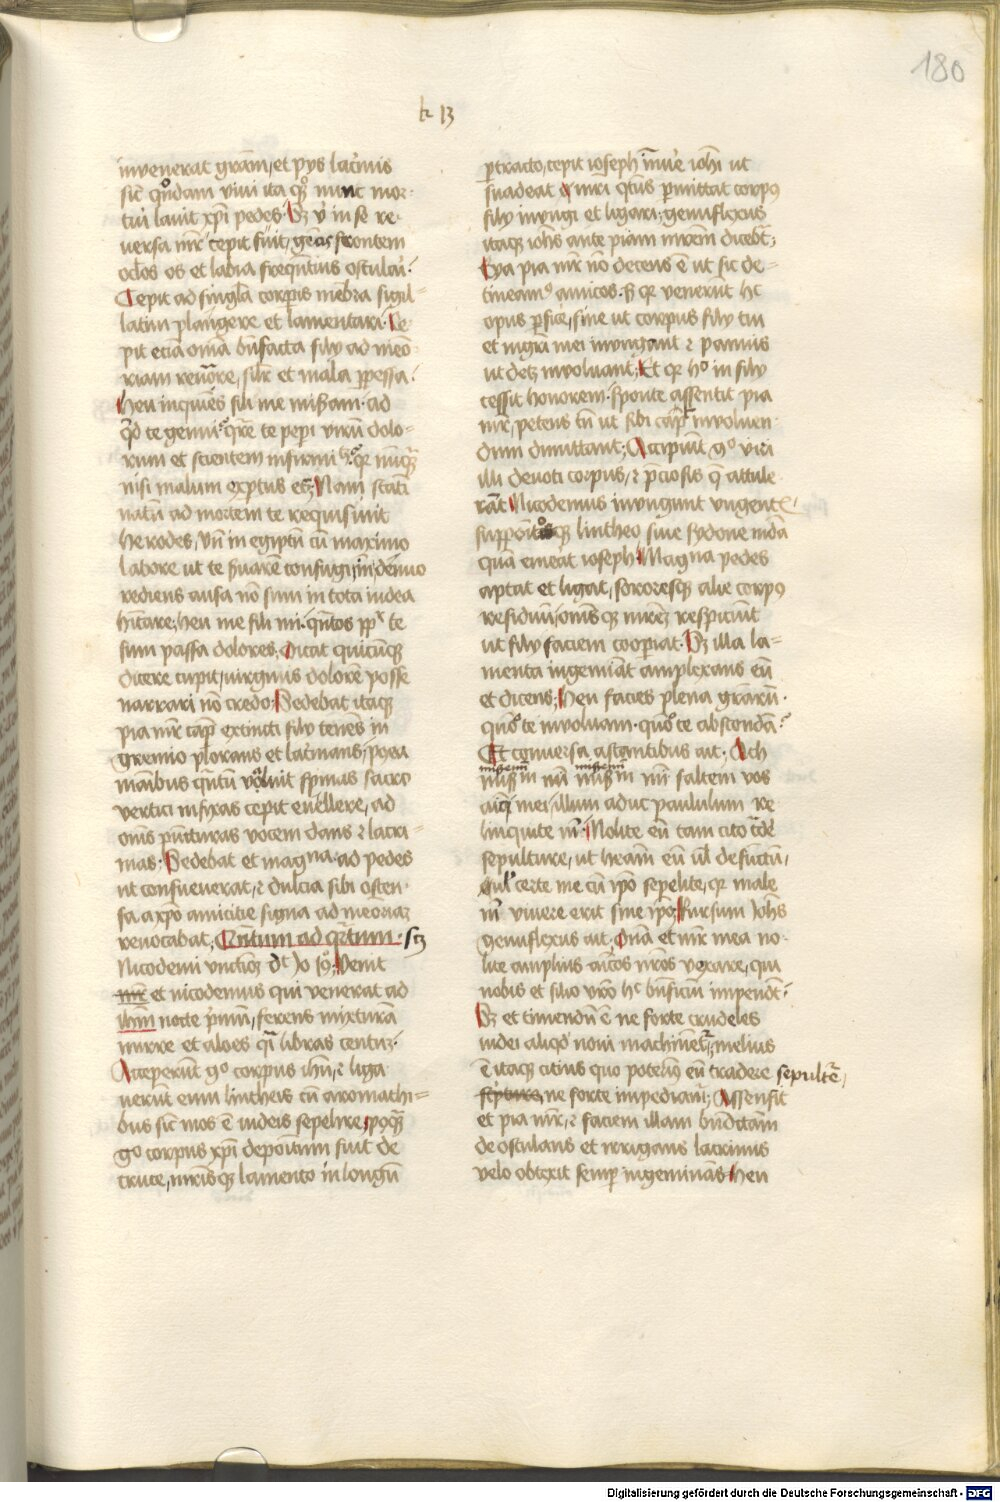 180
k 13
invenerat gram, et pijs lacimis
sic quondam viui ita quoque nunc mor-
tui lauit xpi pedes. Sz vt in se re-
uersa mr cepit fuit, genas frontem
oclos os et labia frequentius osculari.
Cepit ad singula corporis membra sigil-
latim plangere et lamentari. Ce-
pit etiam omnia benefacta filij ad memo-
riam reuocare, similiter et mala perpessa.
heu inquiens fili me miseram. ad
quid te genui. quare te peperi virum dolo-
rum et scientem infirmitatem. qr nunquam
nisi malum expertus es. Nam statim
natum ad mortem te requisiuit
herodes, vnde in egiptum cum maximo
labore ut te seruarem confugi, inde denuo
rediens ausa non sum in tota iudea
habitare, heu me fili mi. quantos propter te
sum passa dolores, Dicat quicunque
dicere cupit, virginis dolorem posse
narrari non credo, Sedebat itaque
pia mr caput extincti filij tenens in
gremio plorans et lacrimans, postea
manibus quantum voluit spinas sacro
vertici infixas cepit euellere, ad
omnes puncturas vocem dans et lacri-
mas. Sedebat et magna ad pedes
ut consueuerat, et dulcia sibi osten-
sa a xpo amicitie signa ad memoriam
reuocabat, Quantum ad quartum. scz
Nicodemi vnctionem dt Jo 19. Venit
mr et nicodemus qui venerat ad
ihm nocte primum, ferens mixturam
mirre et aloes quasi libras centum.
Acceperunt go corpus ihu, et liga-
uerunt eum lintheis cum aromathi-
bus sic mos e iudeis sepelire, postquam
go corpus xpi depositum fuit de
cruce, mrisque lamento in longum
ptracto, cepit ioseph innuere iohi ut
suadeat mri quatenus permittat corpus
filij inungi et ligari, genuflexus
itaque iohs ante piam mrem dicebat,
Eya pia mr non decens e ut sic de-
tineamus amicos. sed qr venerunt hic
opus perficere, sine ut corpus filij tui
et mgri mei inungant et pannis
ut decet inuoluant, Et qr hoc in filij
cessit honorem. sponte assentit pia
mr, petens tamen ut sibi caput inuoluen-
dum dimittant, Accipiunt go viri
illi deuoti corpus, et preciosis que attule-
rat Nicodemus inungunt vngentis,
suppositoque lintheo siue sydone munda
quam emerat ioseph. Magna pedes
aptat et ligat, sororesque alie corpus
residuum, omnesque mrem respiciunt
ut filij faciem cooperiat. Sz illa la-
menta ingeminat amplexans eum
et dicens, heu facies plena gratiarum.
quomodo te inuoluam. quomodo te abscondam?
Et conuersa astantibus ait. Ach
misemini mei misemini mei saltem vos
amici mei, illum adhuc paululum re-
linquite michi. Nolite eum tam cito tradere
sepulture, ut habeam eum vel defunctum,
vel certe me cum ipso sepelite, qr male
michi viuere erit sine ipso, Rursum Johs
genuflexus ait, Domina et mr mea no-
lite amplius amicos nros vexare, qui
nobis et filio vro hoc beneficium impendunt.
Sz et timendum e ne forte crudeles
iudei aliquod noui machinentur, melius
e itaque citius quo poterimus eum tradere sepulture,
ne forte impediamur, Assensit
et pia mr, et faciem illam benedictam
de osculans et irrigans lacrimis
velo obtexit semper ingeminans. heu
Digitalisierung gefördert durch die Deutsche Forschungsgemeinschaft - DFG